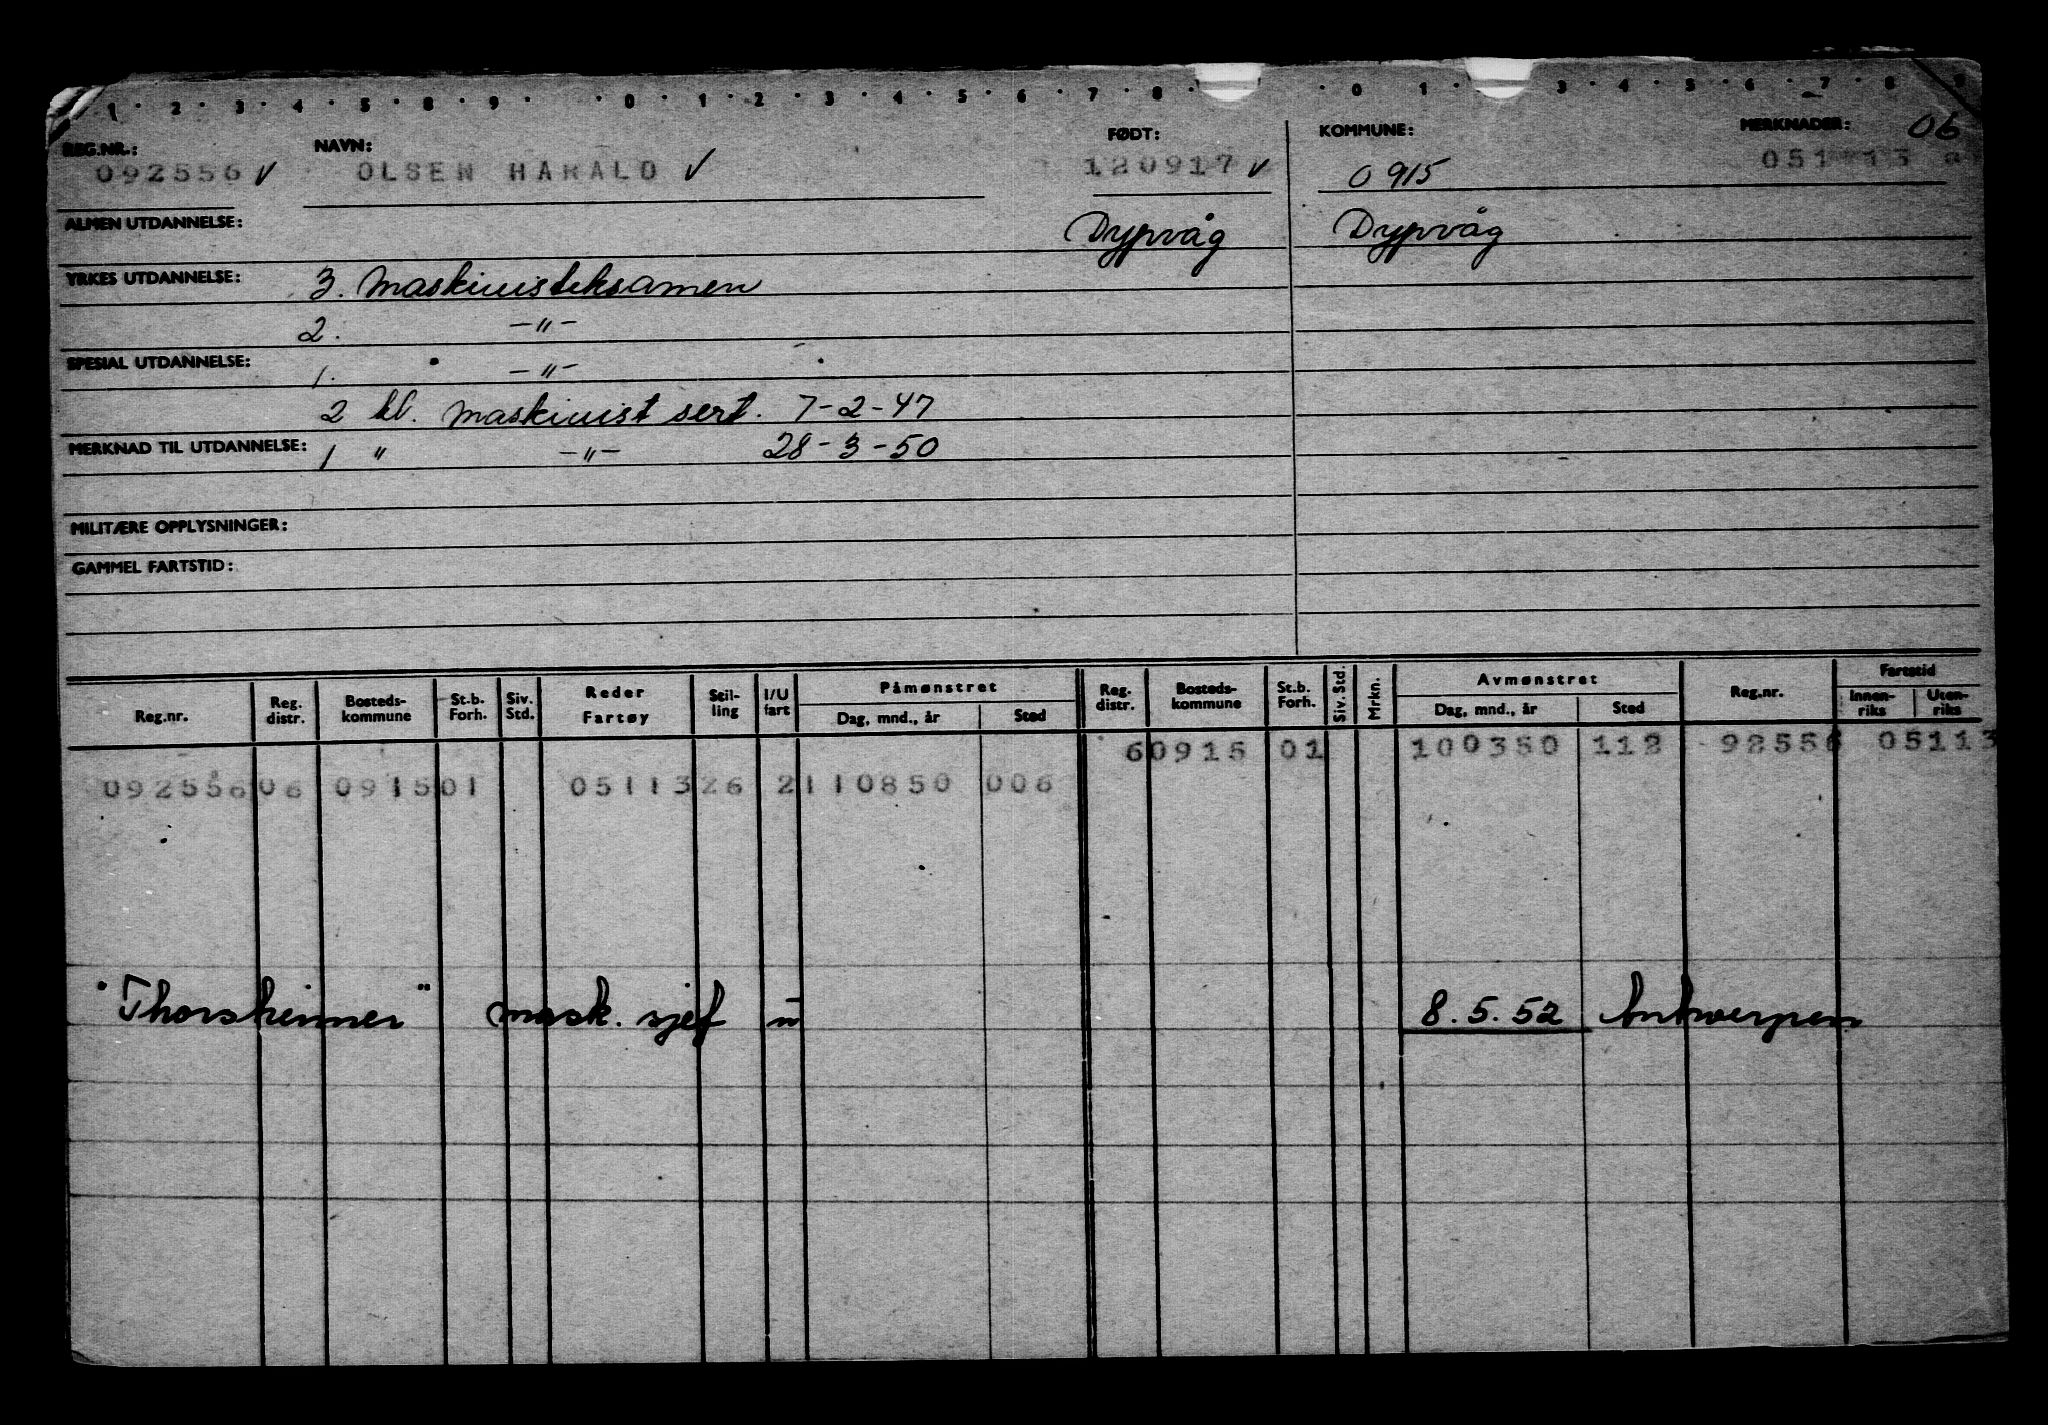 1 · 2 · 3 · 4 · 5 · 8 · 9 · · 0 · 1 · 2 · 3 · 4 · 5 · 6 · 7 · 8 · · 0 1 · 3 · 4 · 5 · 6 · 7 · 8 · 9
REG.NR.: NAVN: FØDT: KOMMUNE: MERKNADER: 06
092556 ✓ OLSEN HARALD ✓ 120917 ✓ 0915
ALMEN UTDANNELSE: Dypvåg Dypvåg
YRKES UTDANNELSE: 3. Maskinisteksamen
2. —〃—
SPESIAL UTDANNELSE: 1. —〃—
2 kl. maskinist sert. 7-2-47
MERKNAD TIL UTDANNELSE: 1 〃 —〃— 28-3-50
MILITÆRE OPPLYSNINGER:
GAMMEL FARTSTID:
Reg.nr. Reg. distr. Bosteds-kommune St.b. Forh. Siv. Std. Reder Fartøy Stil-ling I/U fart Påmønstret Dag, mnd., år Sted Reg. distr. Bosteds-kommune St.b. Forh. Siv. Std. Mrkn. Avmønstret Dag, mnd., år Sted Reg.nr. Fartstid Innen-riks Uten-riks
60915 01 100350 112 92556 05113
092556 06 0915 01 05113 26 2 110850 006
"Thorskinner" mask. sjef u 8.5.52 Antwerpen